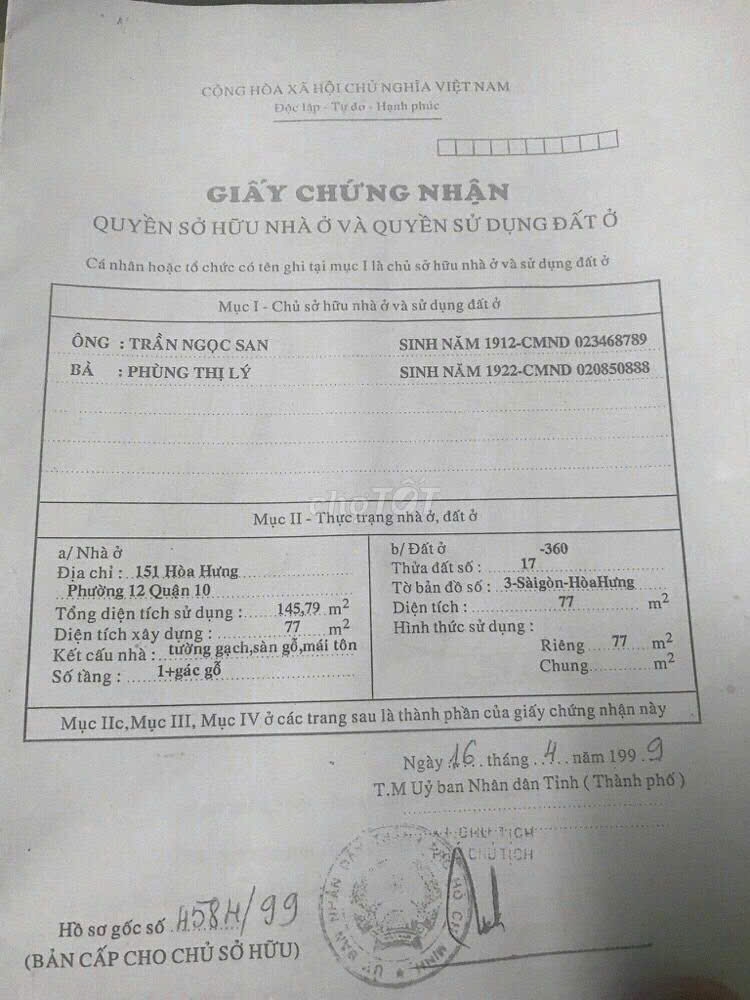 CỘNG HÒA XÃ HỘI CHỦ NGHĨA VIỆT NAM
Độc lập - Tự do - Hạnh phúc
GIẤY CHỨNG NHẬN
QUYỀN SỞ HỮU NHÀ Ở VÀ QUYỀN SỬ DỤNG ĐẤT Ở
Cá nhân hoặc tổ chức có tên ghi tại mục I là chủ sở hữu nhà ở và sử dụng đất ở
Mục I - Chủ sở hữu nhà ở và sử dụng đất ở
ÔNG : TRẦN NGỌC SAN SINH NĂM 1912-CMND 023468789
BÀ : PHÙNG THỊ LÝ SINH NĂM 1922-CMND 020850888
choTỐT
Mục II - Thực trạng nhà ở, đất ở
a/ Nhà ở
Địa chỉ : 151 Hòa Hưng
Phường 12 Quận 10
Tổng diện tích sử dụng : 145,79 m2
Diện tích xây dựng : 77 m2
Kết cấu nhà : tường gạch,sàn gỗ,mái tôn
Số tầng : 1+gác gỗ
b/ Đất ở -360
Thửa đất số : 17
Tờ bản đồ số : 3-Sàigòn-HòaHưng
Diện tích : 77 m2
Hình thức sử dụng :
Riêng 77 m2
Chung m2
Mục IIc, Mục III, Mục IV ở các trang sau là thành phần của giấy chứng nhận này
Ngày 16 tháng 4 năm 1999
T.M Uỷ ban Nhân dân Tỉnh ( Thành phố )
CHỦ TỊCH
CHỦ TỊCH
Hồ sơ gốc số 4584/99
(BẢN CẤP CHO CHỦ SỞ HỮU)